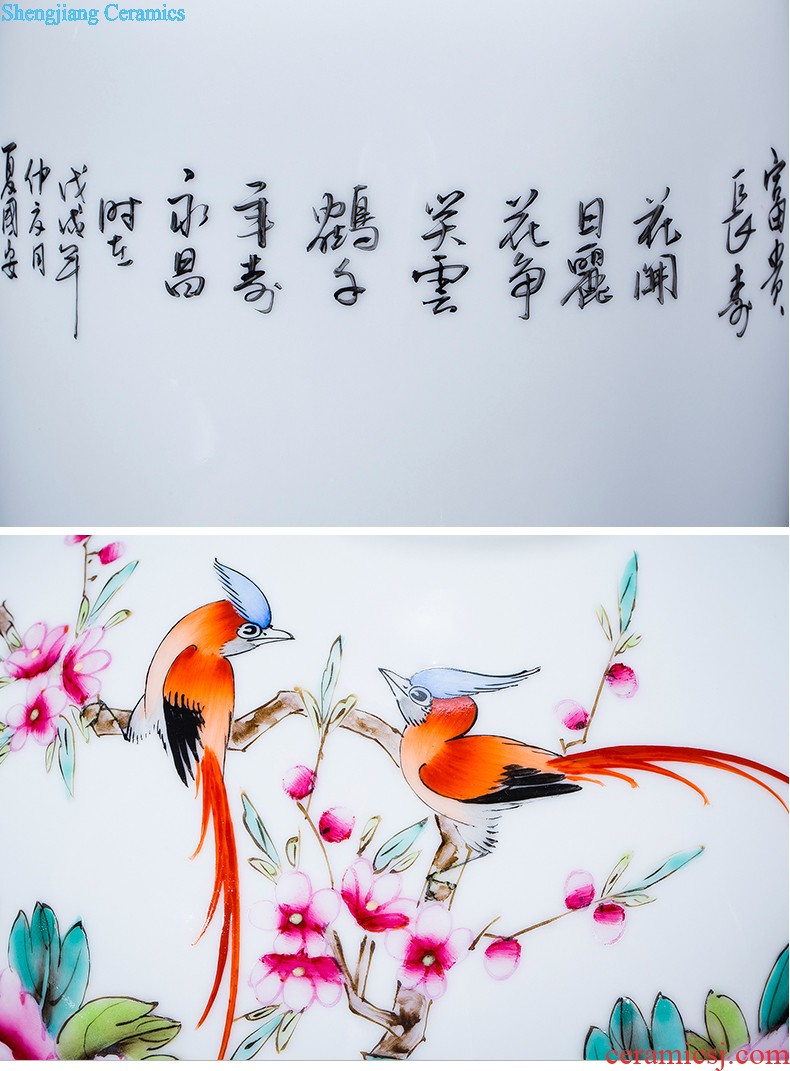 Shengjiang Ceramics
富貴
長壽
花開
日麗
花争
笑雲
鶴千
年壽
永昌
时在
戊戌年
仲夏月
夏國安
ceramicsj.com